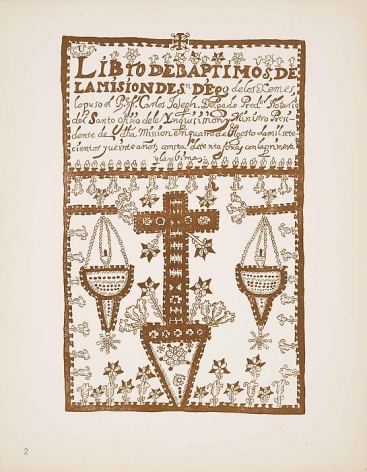 LIBRO DE BAPTIMOS, DE
LA MISION DE Sn. DEgo de los Xemes,
lo puso el Pe. fr. Carlos Joseph Delgado Predor. Notario
del Santo offico dela Ynquisision, y Ministro Presi
dente de dha. Mision en quatro de Agosto de mil sete
cientos y veinte años, consta de ta foxas con la primera
y la ultima
2